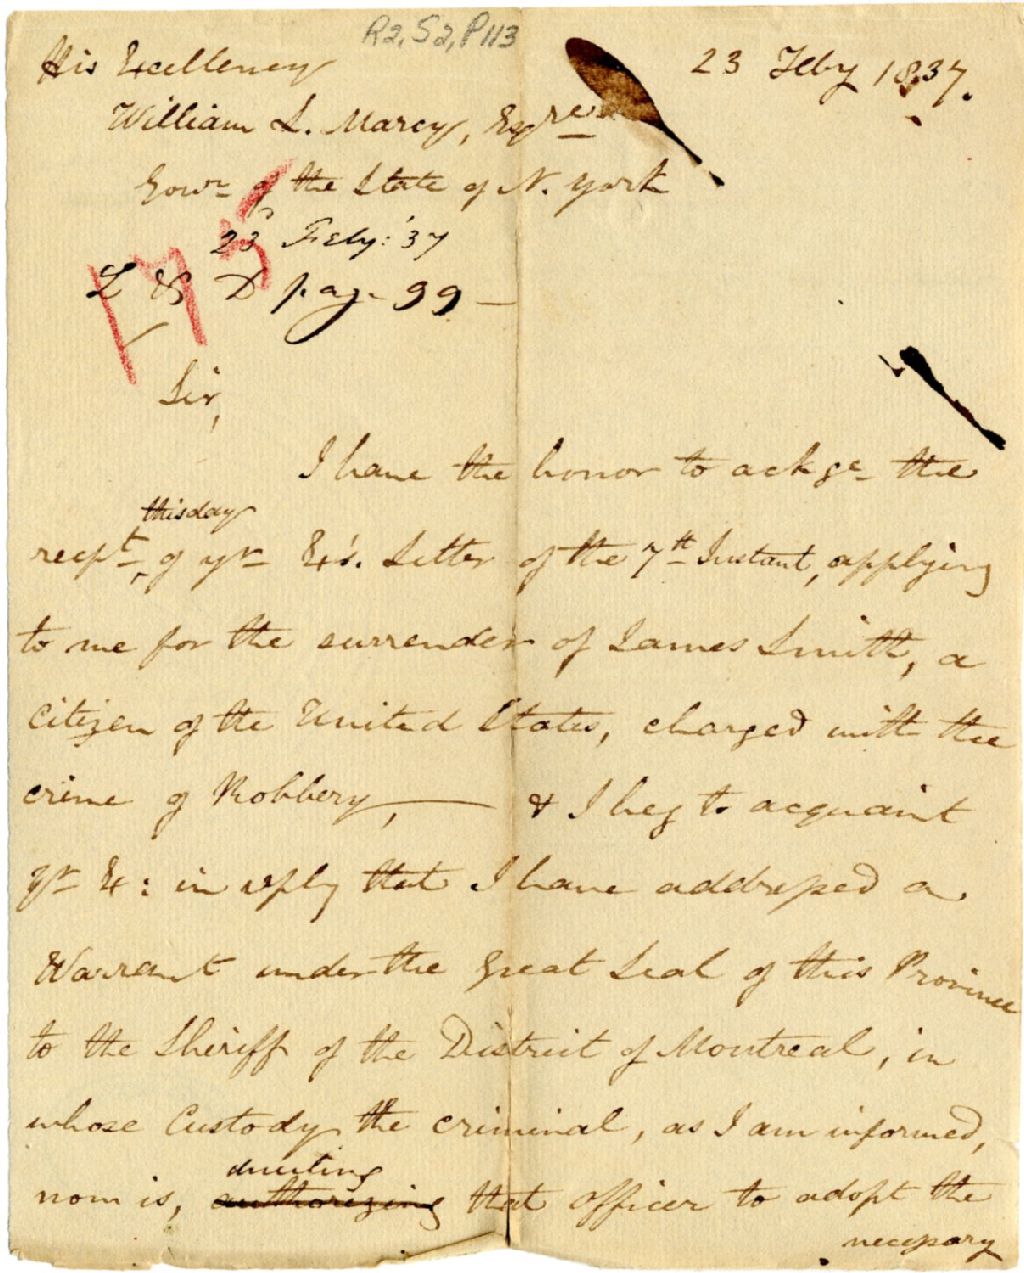 R2, S2, P113
His Excellency
23 Feby 1837.
William L. Marcy, Esqre
Govr of the State of N. York
23 Feby: '37
175
L & D page 99 —
Sir,
I have the honor to ackge the
this day
recpt, of yr Ex's. Letter of the 7th Instant, applying
to me for the surrender of James Smith, a
citizen of the United States, charged with the
crime of Robbery, — & I beg to acquaint
yr Ex: in reply that I have addressed a
Warrant under the Great Seal of this Province
to the Sheriff of the District of Montreal, in
whose Custody the criminal, as I am informed,
directing
now is, authorizing that officer to adopt the
necessary